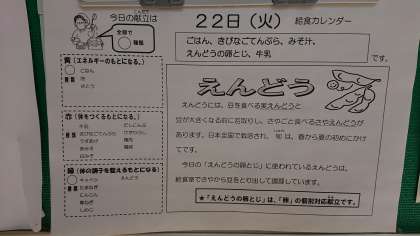 今日の献立は
全部で
種類
22日（火）
給食カレンダー
ごはん、きびなごてんぷら、みそ汁、
えんどうの卵とじ、牛乳
です。
黄（エネルギーのもとになる。）
ごはん
油
さとう
赤（体をつくるもとになる）
牛乳
きびなごてんぷら
みそ
緑（体の調子を整えるもとになる）
キャベツ
えんどう
たまねぎ
にんじん
しめじ
えんどう
えんどうには、豆を食べる実えんどうと
豆が大きくなる前に若取りし、さやごと食べるさやえんどうが
あります。日本全国で栽培され、旬は、春から夏の初めにかけ
てです。
今日の「えんどうの卵とじ」に使われているえんどうは、
給食室でさやから豆をとり出して調理しています。
★「えんどうの卵とじ」は、「卵」の個別対応献立です。